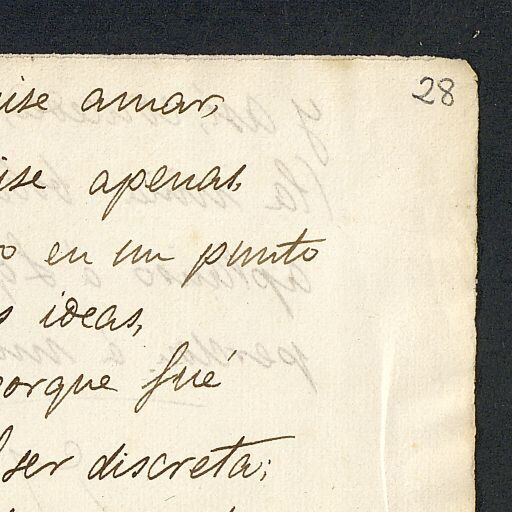 28
ise amar,
ise apenas
o en un punto
s ideas,
porque fué
ser discreta;